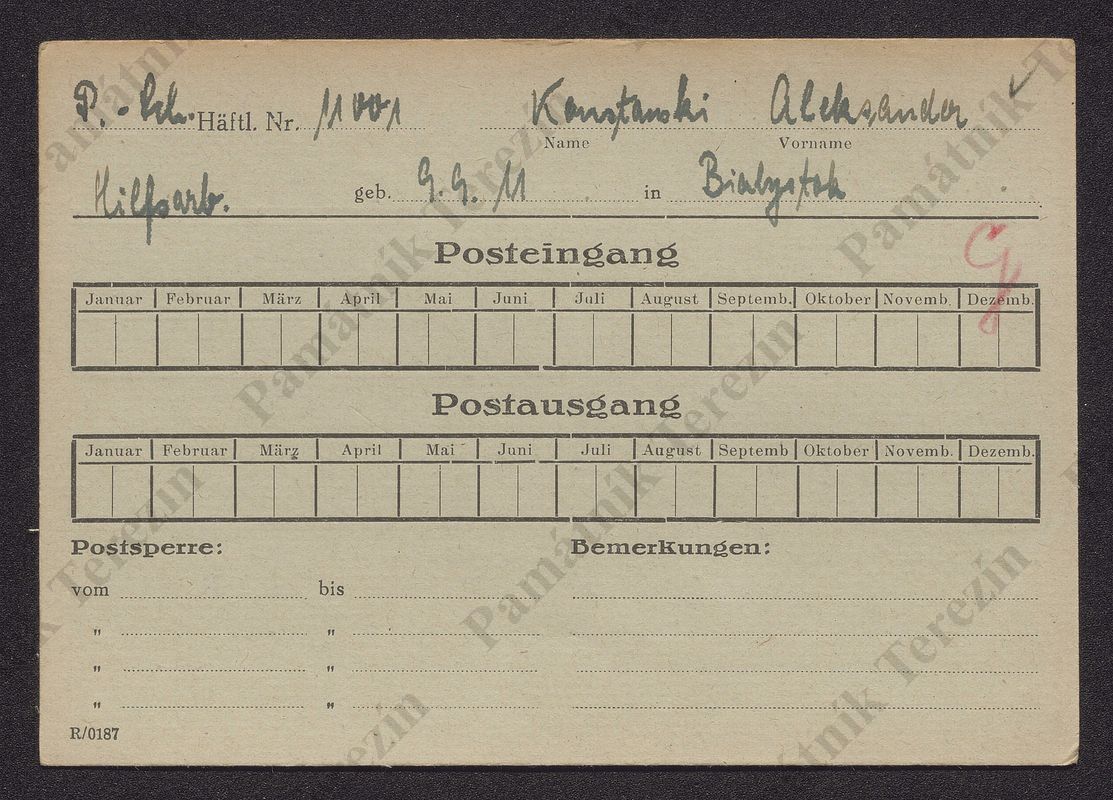 P.-Sch. Häftl. Nr. 11001 Konstanski Aleksander
Name Vorname
Hilfsarb. geb. 9.9.11 in Bialystok
Posteingang
Januar Februar März April Mai Juni Juli August Septemb. Oktober Novemb. Dezemb.
Postausgang
Januar Februar März April Mai Juni Juli August Septemb Oktober Novemb. Dezemb.
Postsperre: Bemerkungen:
vom bis
" "
" "
" "
R/0187
Památník Terezín